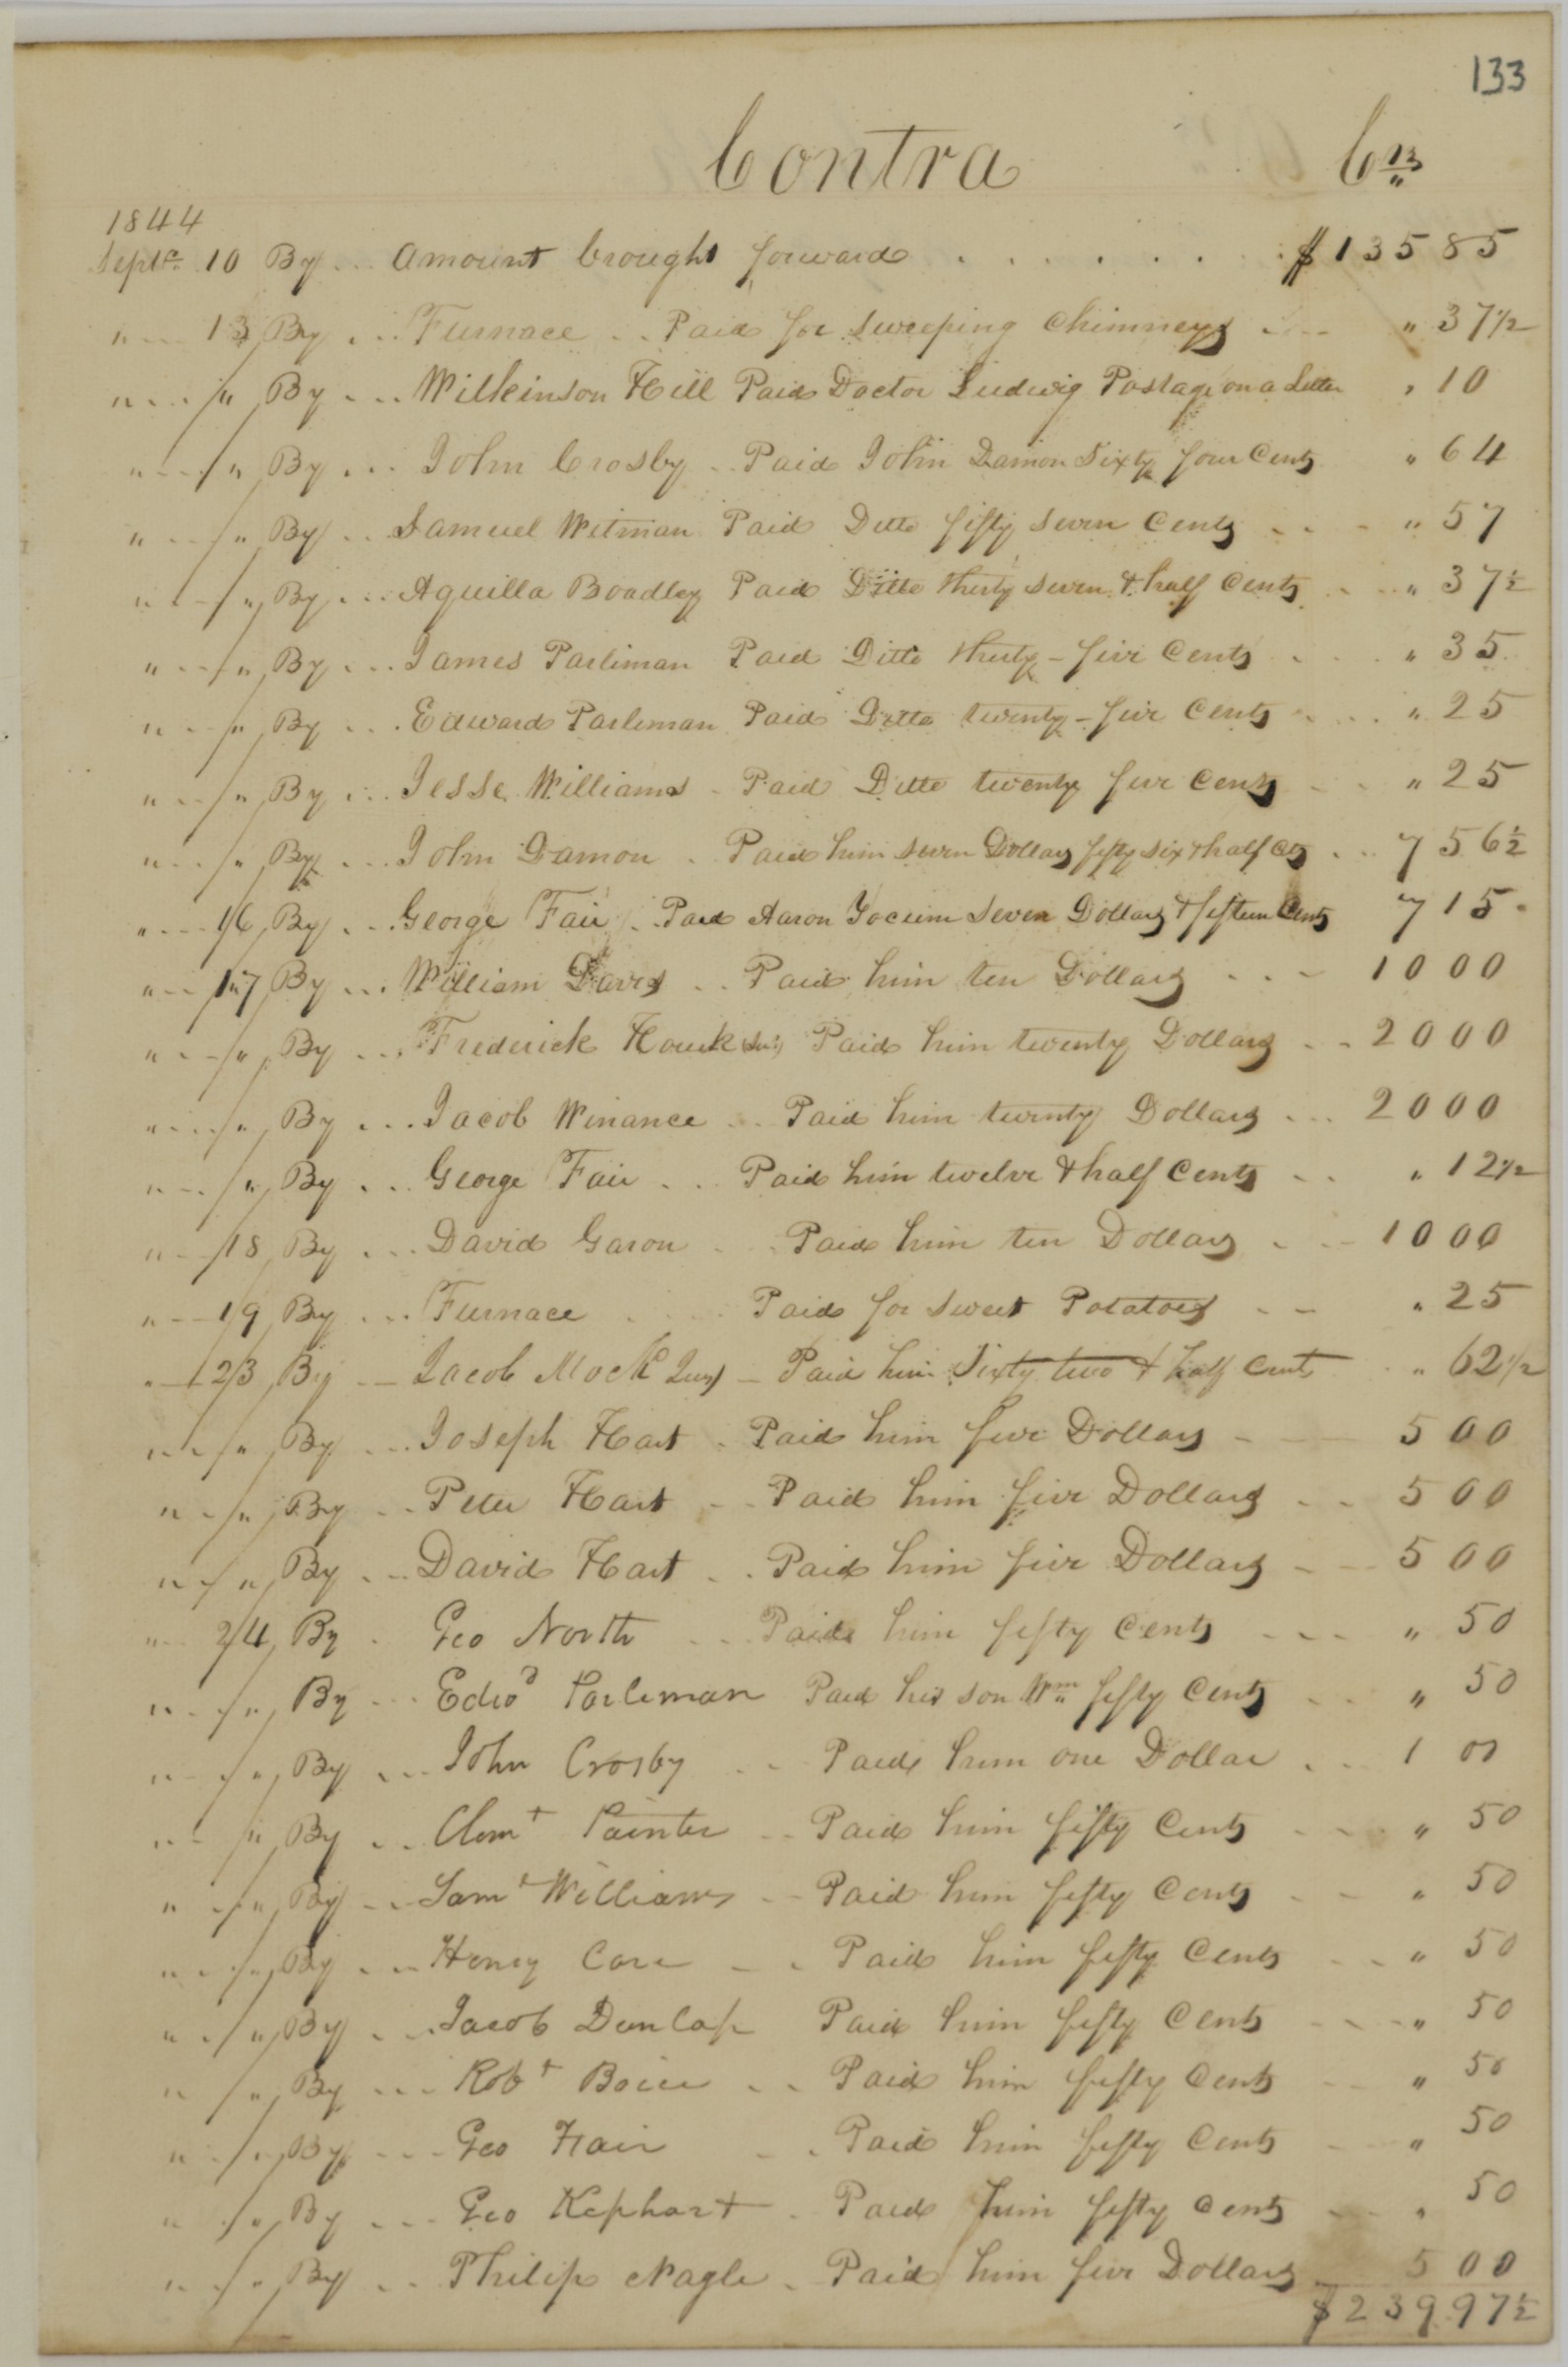 133
Contra Crs
1844
Septr 10 By ... Amount brought forward . . . . . . $135 85
" --- 13 By ... Furnace .. Paid for Sweeping Chimneys ... " 37 1/2
" --- " By ... Wilkinson Hill Paid Doctor Ludwig Postage on a Letter " 10
" --- " By ... John Crosby .. Paid John Damon Sixty four Cents " 64
" --- " By ... Samuel Witman Paid Ditto fifty Seven Cents ... " 57
" --- " By ... Aquilla Boadley Paid Ditto thirty Seven & half Cents ... " 37 1/2
" --- " By ... James Parliman Paid Ditto thirty-five Cents ... " 35
" --- " By ... Edward Parliman Paid Ditto twenty-five Cents ... " 25
" --- " By ... Jesse Williams - Paid Ditto twenty five Cents ... " 25
" --- " By ... John Damon . Paid him Seven Dollars fifty Six & half Cts ... 7 56 1/2
" --- 16 By ... George Fair .. Paid Aaron Yocum Seven Dollars & fifteen Cents 7 15
" -- 17 By ... William Davis .. Paid him ten Dollars ... 10 00
" --- " By ... Frederick Houck Paid him twenty Dollars ... 20 00
" --- " By ... Jacob Winance .. Paid him twenty Dollars ... 20 00
" --- " By ... George Fair ... Paid him twelve & half Cents ... " 12 1/2
" -- 18 By ... David Garon .. Paid him ten Dollars ... 10 00
" -- 19 By ... Furnace ... Paid for Sweet Potatoes -- " 25
" -- 23 By -- Jacob Mock Junr - Paid him Sixty two & half Cents " 62 1/2
" --- " By ... Joseph Hart . Paid him five Dollars - 5 00
" -- " By ... Peter Hart .. Paid him five Dollars .. 5 00
" -- " By ... David Hart .. Paid him five Dollars -- 5 00
" -- 24 By . Geo North ... Paid him fifty Cents --- " 50
" -- " By ... Edwd Parliman Paid his son Wm fifty Cents ... " 50
" -- " By ... John Crosby .. Paid him one Dollar ... 1 00
" -- " By .. Clemt Painter .. Paid him fifty Cents --- " 50
" -- " By ... Saml Williams -- Paid him fifty Cents -- " 50
" -- " By ... Henry Care -- Paid him fifty Cents --- " 50
" -- " By ... Jacob Dunlap Paid him fifty Cents --- " 50
" -- " By ... Robt Boice .. Paid him fifty Cents -- " 50
" -- " By ... Geo Hair -- Paid him fifty Cents -- " 50
" -- " By ... Geo Kephart . Paid him fifty Cents -- " 50
" -- " By .. Philip Nagle . Paid him five Dollars 5 00
$239 97 1/2